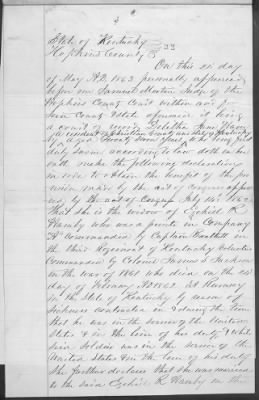 State of Kentucky
Hopkins County } SS
On this 21 day
of May A.D. 1863 personally appeared
before me Samuel Morton Judge of the
Hopkins County Court within and for
said County & State aforesaid it being
a court of record Tabitha
a resident of County and State of Kentucky
aged years who being first
duly sworn according to law doth on her
oath make the following declaration
in order to obtain the benefit of the pro
vision made by the act of Congress approv
ed by the act of Congress July 14th 1862
That she is the widow of Ezekiel R
who was a private in Company
"A" commanded by Captain
in the third Regiment of Kentucky
Commanded by Colonel James S Jackson
in the war of 1861 who died on the
day of February AD 1862 at Rumsey
in the State of Kentucky by reason of
sickness contracted in & during the time
that he was in the service of the United
States & in the line of his duty & while
said soldier was in the service of the
United States & in the line of his duty
She further declares that she was married
to the said Ezekiel R on the